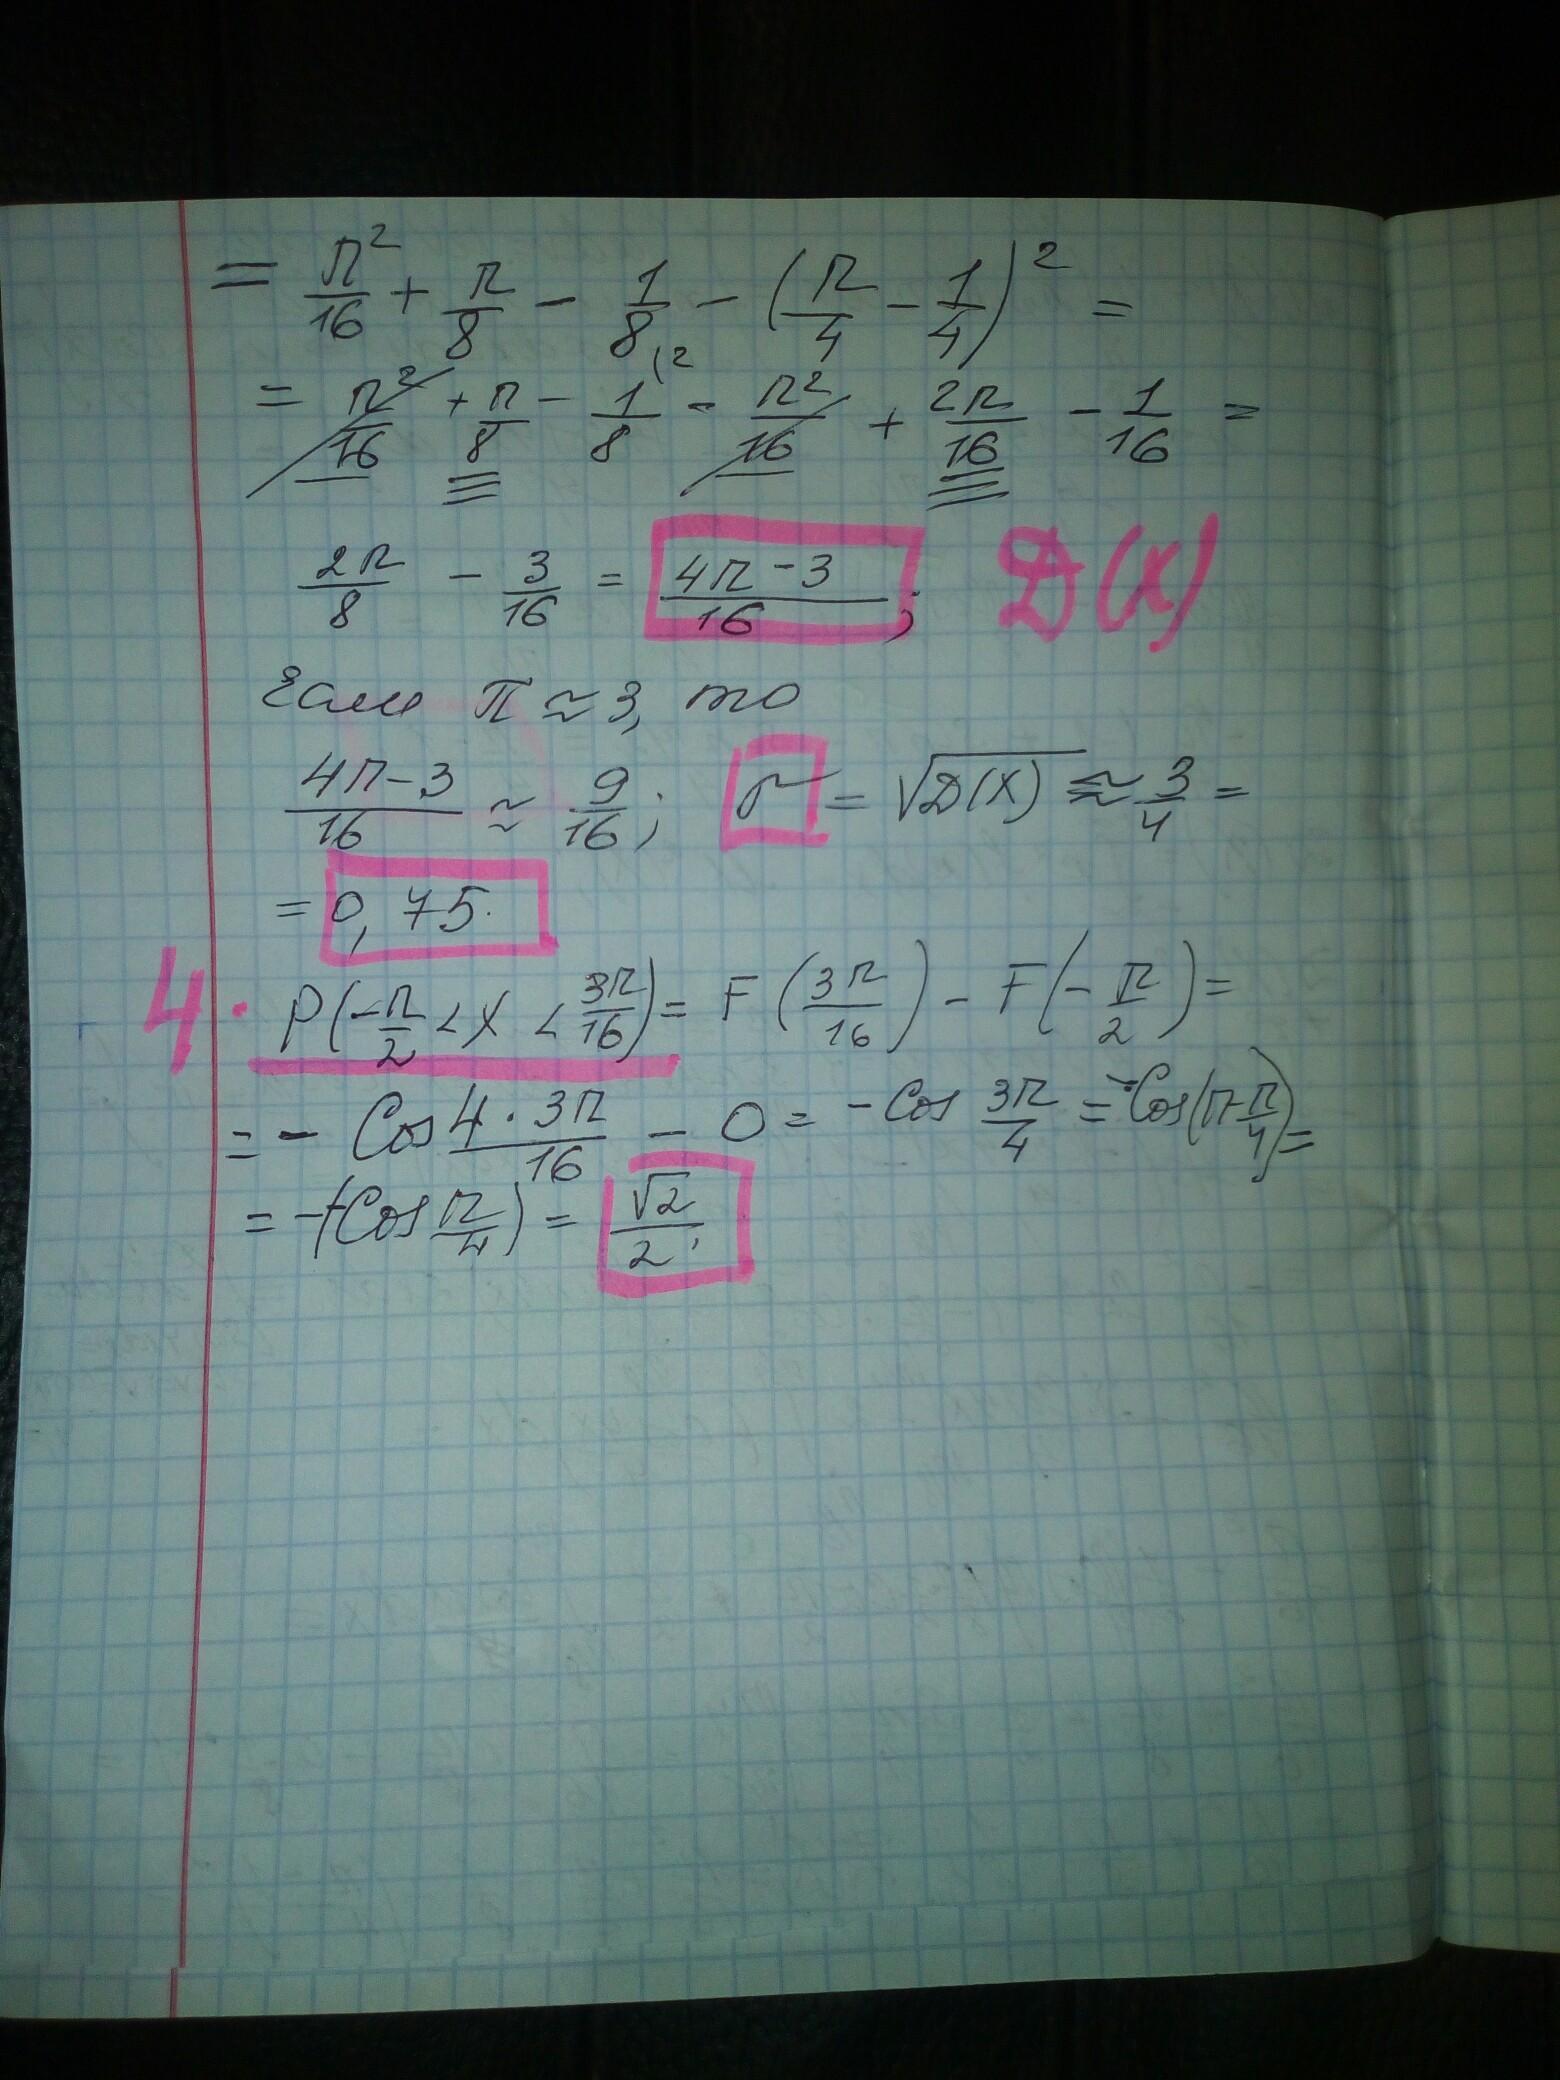 = π²/16 + π/8 - 1/8 - (π/4 - 1/4)² =
= π²/16 + π/8 - 1/8 (2 - π²/16 + 2π/16 - 1/16 =
2π/8 - 3/16 = 4π-3/16 ; D(X)
Если π ≈ 3, то
4π-3/16 ≈ 9/16 ; σ = √D(X) ≈ 3/4 =
= 0,75.
4. P(-π/2 < X < 3π/16) = F(3π/16) - F(-π/2) =
= - Cos 4·3π/16 - 0 = - Cos 3π/4 = -Cos(π-π/4) =
= -(-Cos π/4) = √2/2 ;